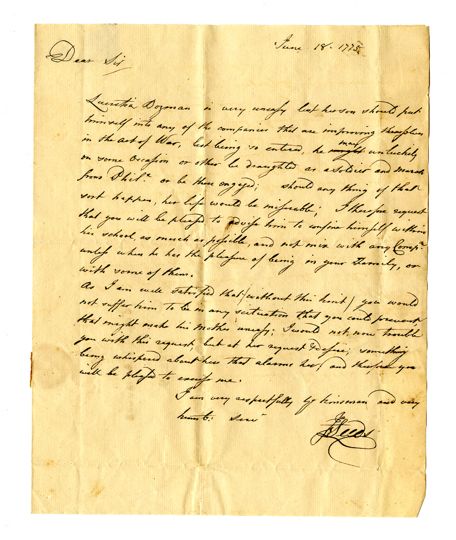 June 18. 1775
Dear Sir
Lucretia Bozman is very uneasy lest her son should put
himself into any of the companies that are improving themselves
in the Art of War, lest being so entered, he may unluckily
on some Occasion or other be draughted as a Soldier and march
from Phila. or be there engaged; should any thing of that
sort happen, her life would be miserable; I therefore request
that you will be pleased to advise him to confine himself within
his school, as much as possible, and not mix with any Compy.
unless when he has the pleasure of being in your Family, or
with some of them.
As I am well satisfied that (without this hint) you would
not suffer him to be in any situation that you could prevent
that might make his Mother uneasy; I would not, now trouble
you with this request, but at her request & desire; something
being whispered about here that alarms her; and therefore you
will be pleased to excuse me.
I am very respectfully yr kinsman and very
humb: Servt